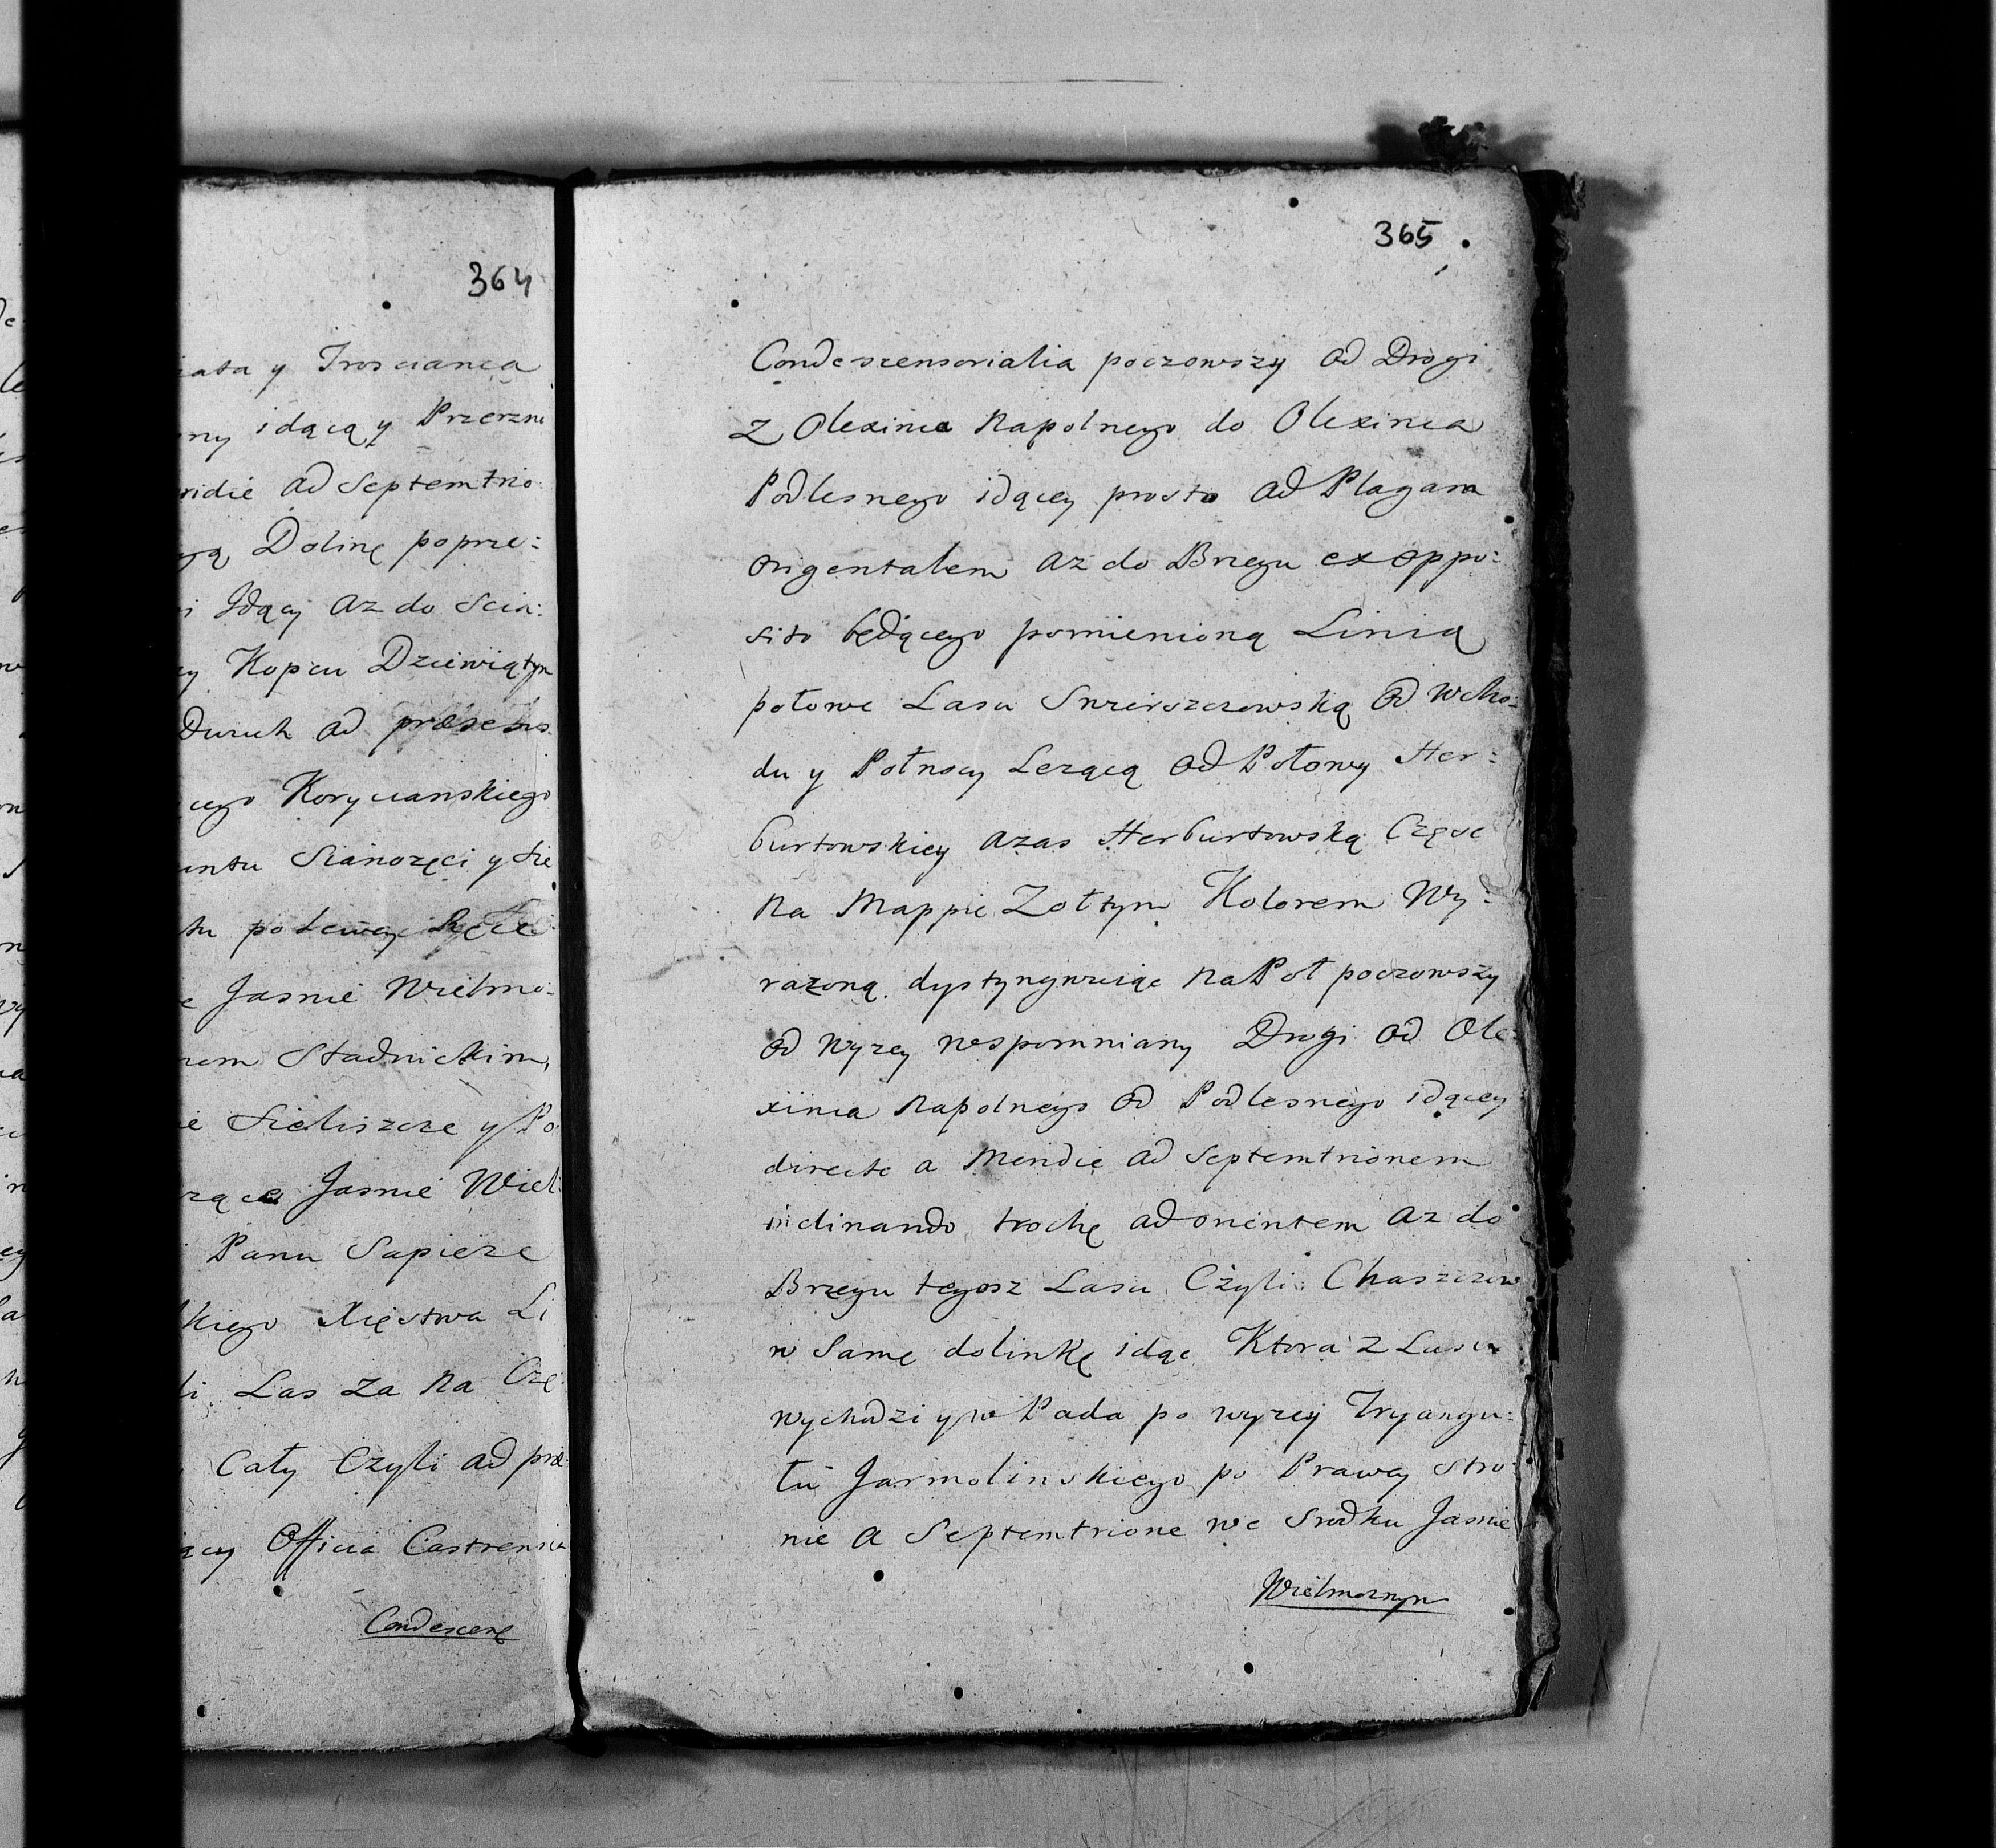 364
iata y Troscianca
ny idącą y Przerzni
ridie ad Septemtrio
Dolinę poprze:
i Idący az do Scia:
y Kopcu Dziewiątym
Duruch ad præsens
cego Koryczanskiego
untu Sianozęci y
tu
e Jasnie Wielmo:
nem Stadnickim,
ie Sieliszcze y Po
rzące Jasnie Wiel:
Panu Sapieze
kiego Xięstwa Li
li Las Za na Czę
Cały Czyli ad præ
ący Officia Castrensia
Condescenę
365
Condescensorialia poczowszy od Drogi
z Olexinca Napolnego do Olexinca
Podlesnego idącey prosto ad Plagam
origentalem az do Brzegu ex oppo:
sito będącego pomienioną Linią
połowe Lasu Swierszczowską od Wcho:
du y Połnocy Lezącą od Połowy Her:
burtowskiey azas Herburtowską Częsc
Na Mappie Zołtym Kolorem Wy:
razoną dystyngwuiąc na Poł poczowszy
od wyzey wspomniany Drogi od Ole:
xinca Napolnego od Podlesnego idącey
directe a Meridie ad Septemtrionem
inclinando trochę ad orientem az do
Brzegu tegosz Lasu Czyli Chaszczow
w Samę dolinkę idąc Ktora z Lasu
wychodzi y w Pada po wyzey Tryangu:
łu Jarmolinskiego po Prawey stro:
nie a Septemtrione we Srodku Jasnie
Wielmoznym